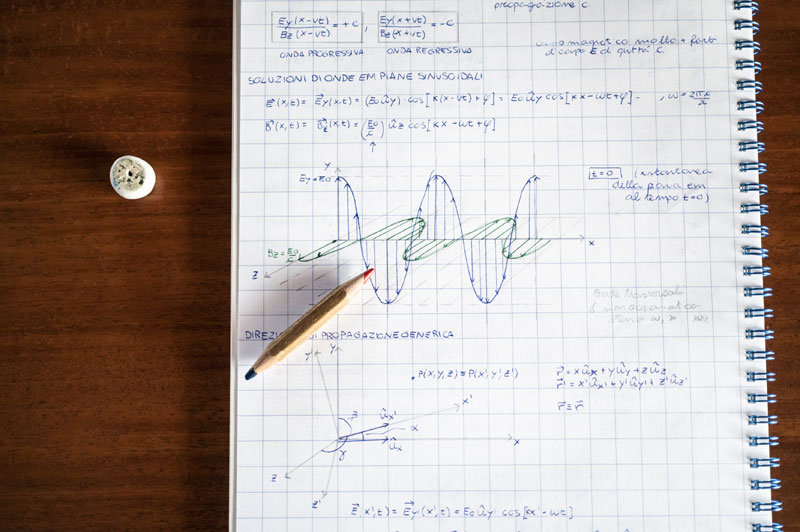 propagazione c.
Ey(x-vt)/Bz(x-vt) = +c , Ey(x+vt)/Bz(x+vt) = -c
ONDA PROGRESSIVA ONDA REGRESSIVA
campo magnetico molto + forte
di campo E di quttà c.
SOLUZIONI DI ONDE EM PIANE SINUSOIDALI
E⃗(x,t) = E⃗y(x,t) = (E₀ûy)·cos[k(x-vt)+φ] = E₀ûy cos[kx-ωt+φ] . , ω =
B⃗(x,t) = B⃗z(x,t) = (E₀/c) ûz cos[kx-ωt+φ]
y
Ey=E₀
t=0 (istantanea
della piana em
al tempo t=0)
x
Bz = E₀/c
z
Onde trasversali
DIREZI DI PROPAGAZIONE GENERICA
y' y
P(x,y,z) ≡ P(x',y',z')
r⃗ = xûx + yûy + zûz
r⃗' = x'ûx' + y'ûy' + z'ûz'
r⃗ ≡ r⃗'
x'
β ûx' α
ûx x
γ
z
z'
E⃗ x',t) = E⃗y'(x',t) = E₀ûy' cos[kx'-ωt]